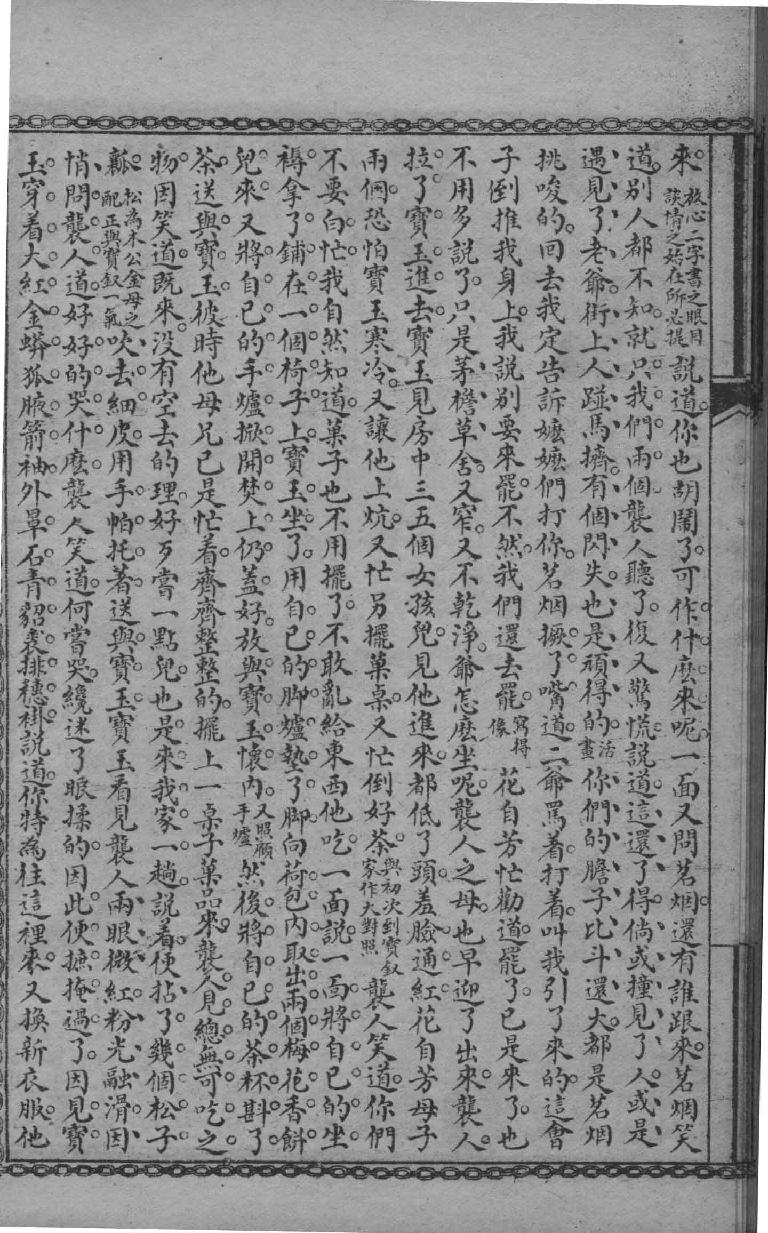 來。放心二字書之眼目談情之始在所必提說道你也胡鬧了。可作什麽來呢。一面又問茗烟。還有誰跟來。茗烟笑
道。別人都不知。就只我們兩個。襲人聽了。復又驚慌說道。這還了得。倘或撞見了人。或是
遇見了老爺。街上人踫馬擠。有個閃失。也是頑得的。活畫你們的膽子比斗還大。都是茗烟
挑唆的。回去我定告訴嬷嬷們打你。茗烟撅了嘴道。二爺罵着打着叫我引了來的。這會
子倒推我身上。我說别要來罷。不然我們還去罷。寫得像花自芳忙勸道。罷了。已是來了。也
不用多說了。只是茅檐草舍。又窄。又不乾淨。爺怎麽坐呢。襲人之母也早迎了出來。襲人
拉了寶玉進去。寶玉見房中三五個女孩兒。見他進來。都低了頭。羞臉通紅。花自芳母子
兩個恐怕寶玉寒冷。又讓他上炕。又忙另擺菓桌。又忙倒好茶。與初次到寶釵家作大對照襲人笑道。你們
不要白忙。我自然知道。菓子也不用擺了。不敢亂給東西他吃。一面說。一面將自已的坐
褥拿了。鋪在一個椅子上。寶玉坐了。用自已的脚爐墊了脚。向荷包內取出兩個梅花香餅
兒來。又將自已的手爐掀開焚上。仍蓋好。放與寶玉懷內。又照顧手爐然後將自已的茶杯斟了
茶。送與寶玉。彼時他母兄已是忙着齊齊整整的擺上一桌子菓品來。襲人見總無可吃之
物。因笑道。既來。没有空去的理。好歹嘗一點兒。也是來我家一趟。說着便拈了幾個松子
瓤。松為木公金母之配正與寶釵一氣吹去細皮。用手帕托著。送與寶玉。寶玉看見襲人兩眼微紅。粉光融滑。因
悄問襲人道。好好的哭什麽。襲人笑道。何嘗哭。纔迷了眼揉的。因此便摭掩過了。因見寶
玉穿着大紅金蟒狐腋箭袖。外罩石青貂裘排穗褂。說道。你特為往這裡來。又換新衣服。他